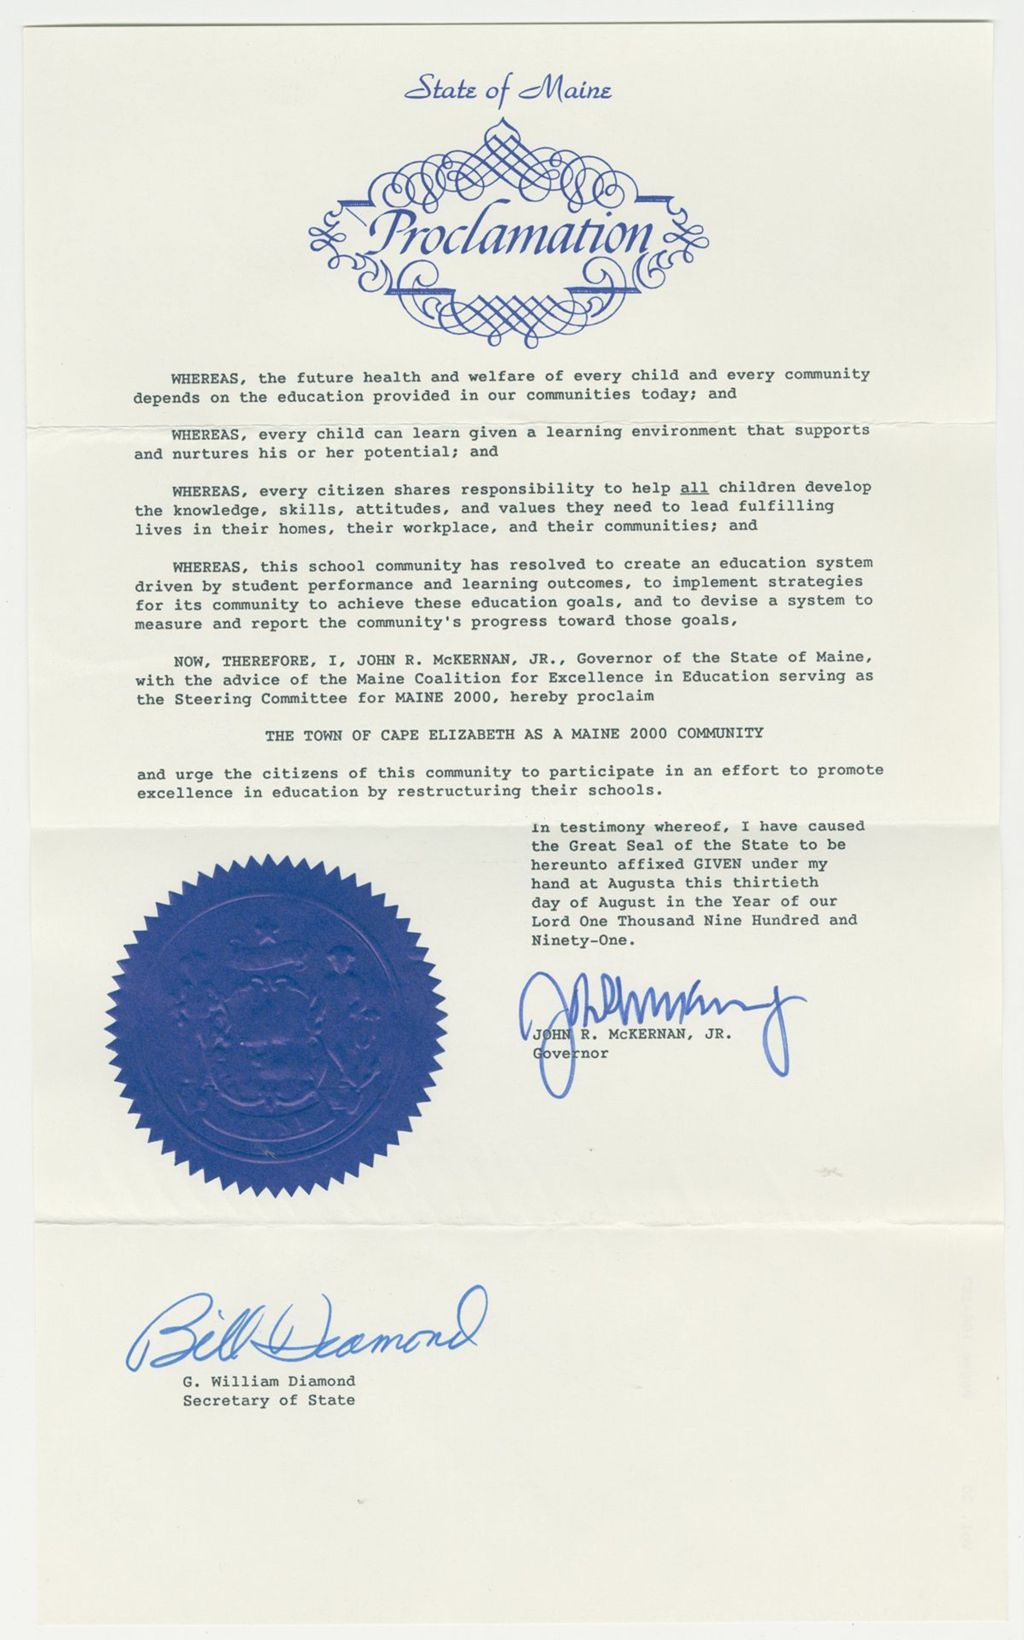 State of Maine
Proclamation
WHEREAS, the future health and welfare of every child and every community
depends on the education provided in our communities today; and
WHEREAS, every child can learn given a learning environment that supports
and nurtures his or her potential; and
WHEREAS, every citizen shares responsibility to help all children develop
the knowledge, skills, attitudes, and values they need to lead fulfilling
lives in their homes, their workplace, and their communities; and
WHEREAS, this school community has resolved to create an education system
driven by student performance and learning outcomes, to implement strategies
for its community to achieve these education goals, and to devise a system to
measure and report the community's progress toward those goals,
NOW, THEREFORE, I, JOHN R. McKERNAN, JR., Governor of the State of Maine,
with the advice of the Maine Coalition for Excellence in Education serving as
the Steering Committee for MAINE 2000, hereby proclaim
THE TOWN OF CAPE ELIZABETH AS A MAINE 2000 COMMUNITY
and urge the citizens of this community to participate in an effort to promote
excellence in education by restructuring their schools.
In testimony whereof, I have caused
the Great Seal of the State to be
hereunto affixed GIVEN under my
hand at Augusta this thirtieth
day of August in the Year of our
Lord One Thousand Nine Hundred and
Ninety-One.
JOHN R. McKERNAN, JR.
Governor
Bill Diamond
G. William Diamond
Secretary of State